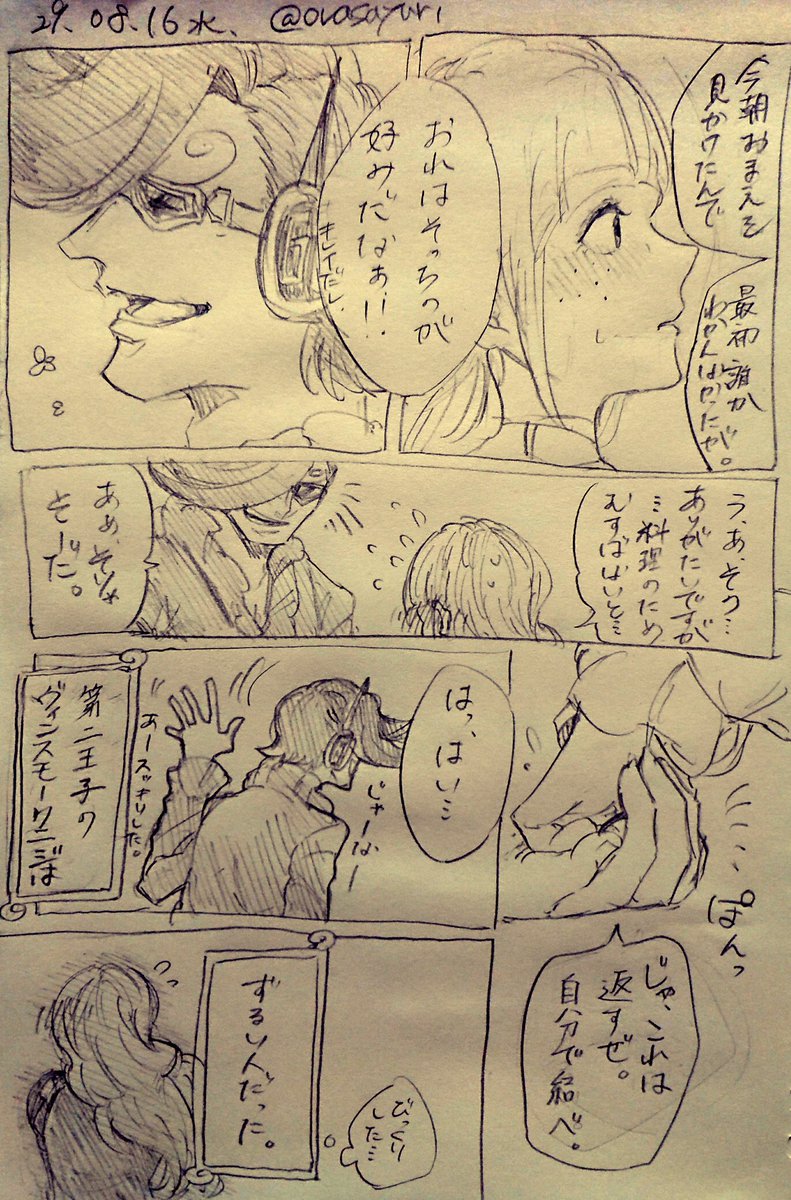 29.08.16水. @ovasayuri
今朝おまえを
見かけたんで
最初誰か
わかんなかったが。
おれはそっちのが
好みだなあ!!
キレイだし
う、あ、その…
ありがたいですが
…料理のため
むすばないと…
ああ、そりゃ
そーだ。
ぽんっ
じゃ、これは
返すぜ。
自分で結べ。
はっ、はい…
じゃーなー
あースッキリした。
第二王子の
ヴィンスモークニジは
びっくり
した…
ずるい人だった。